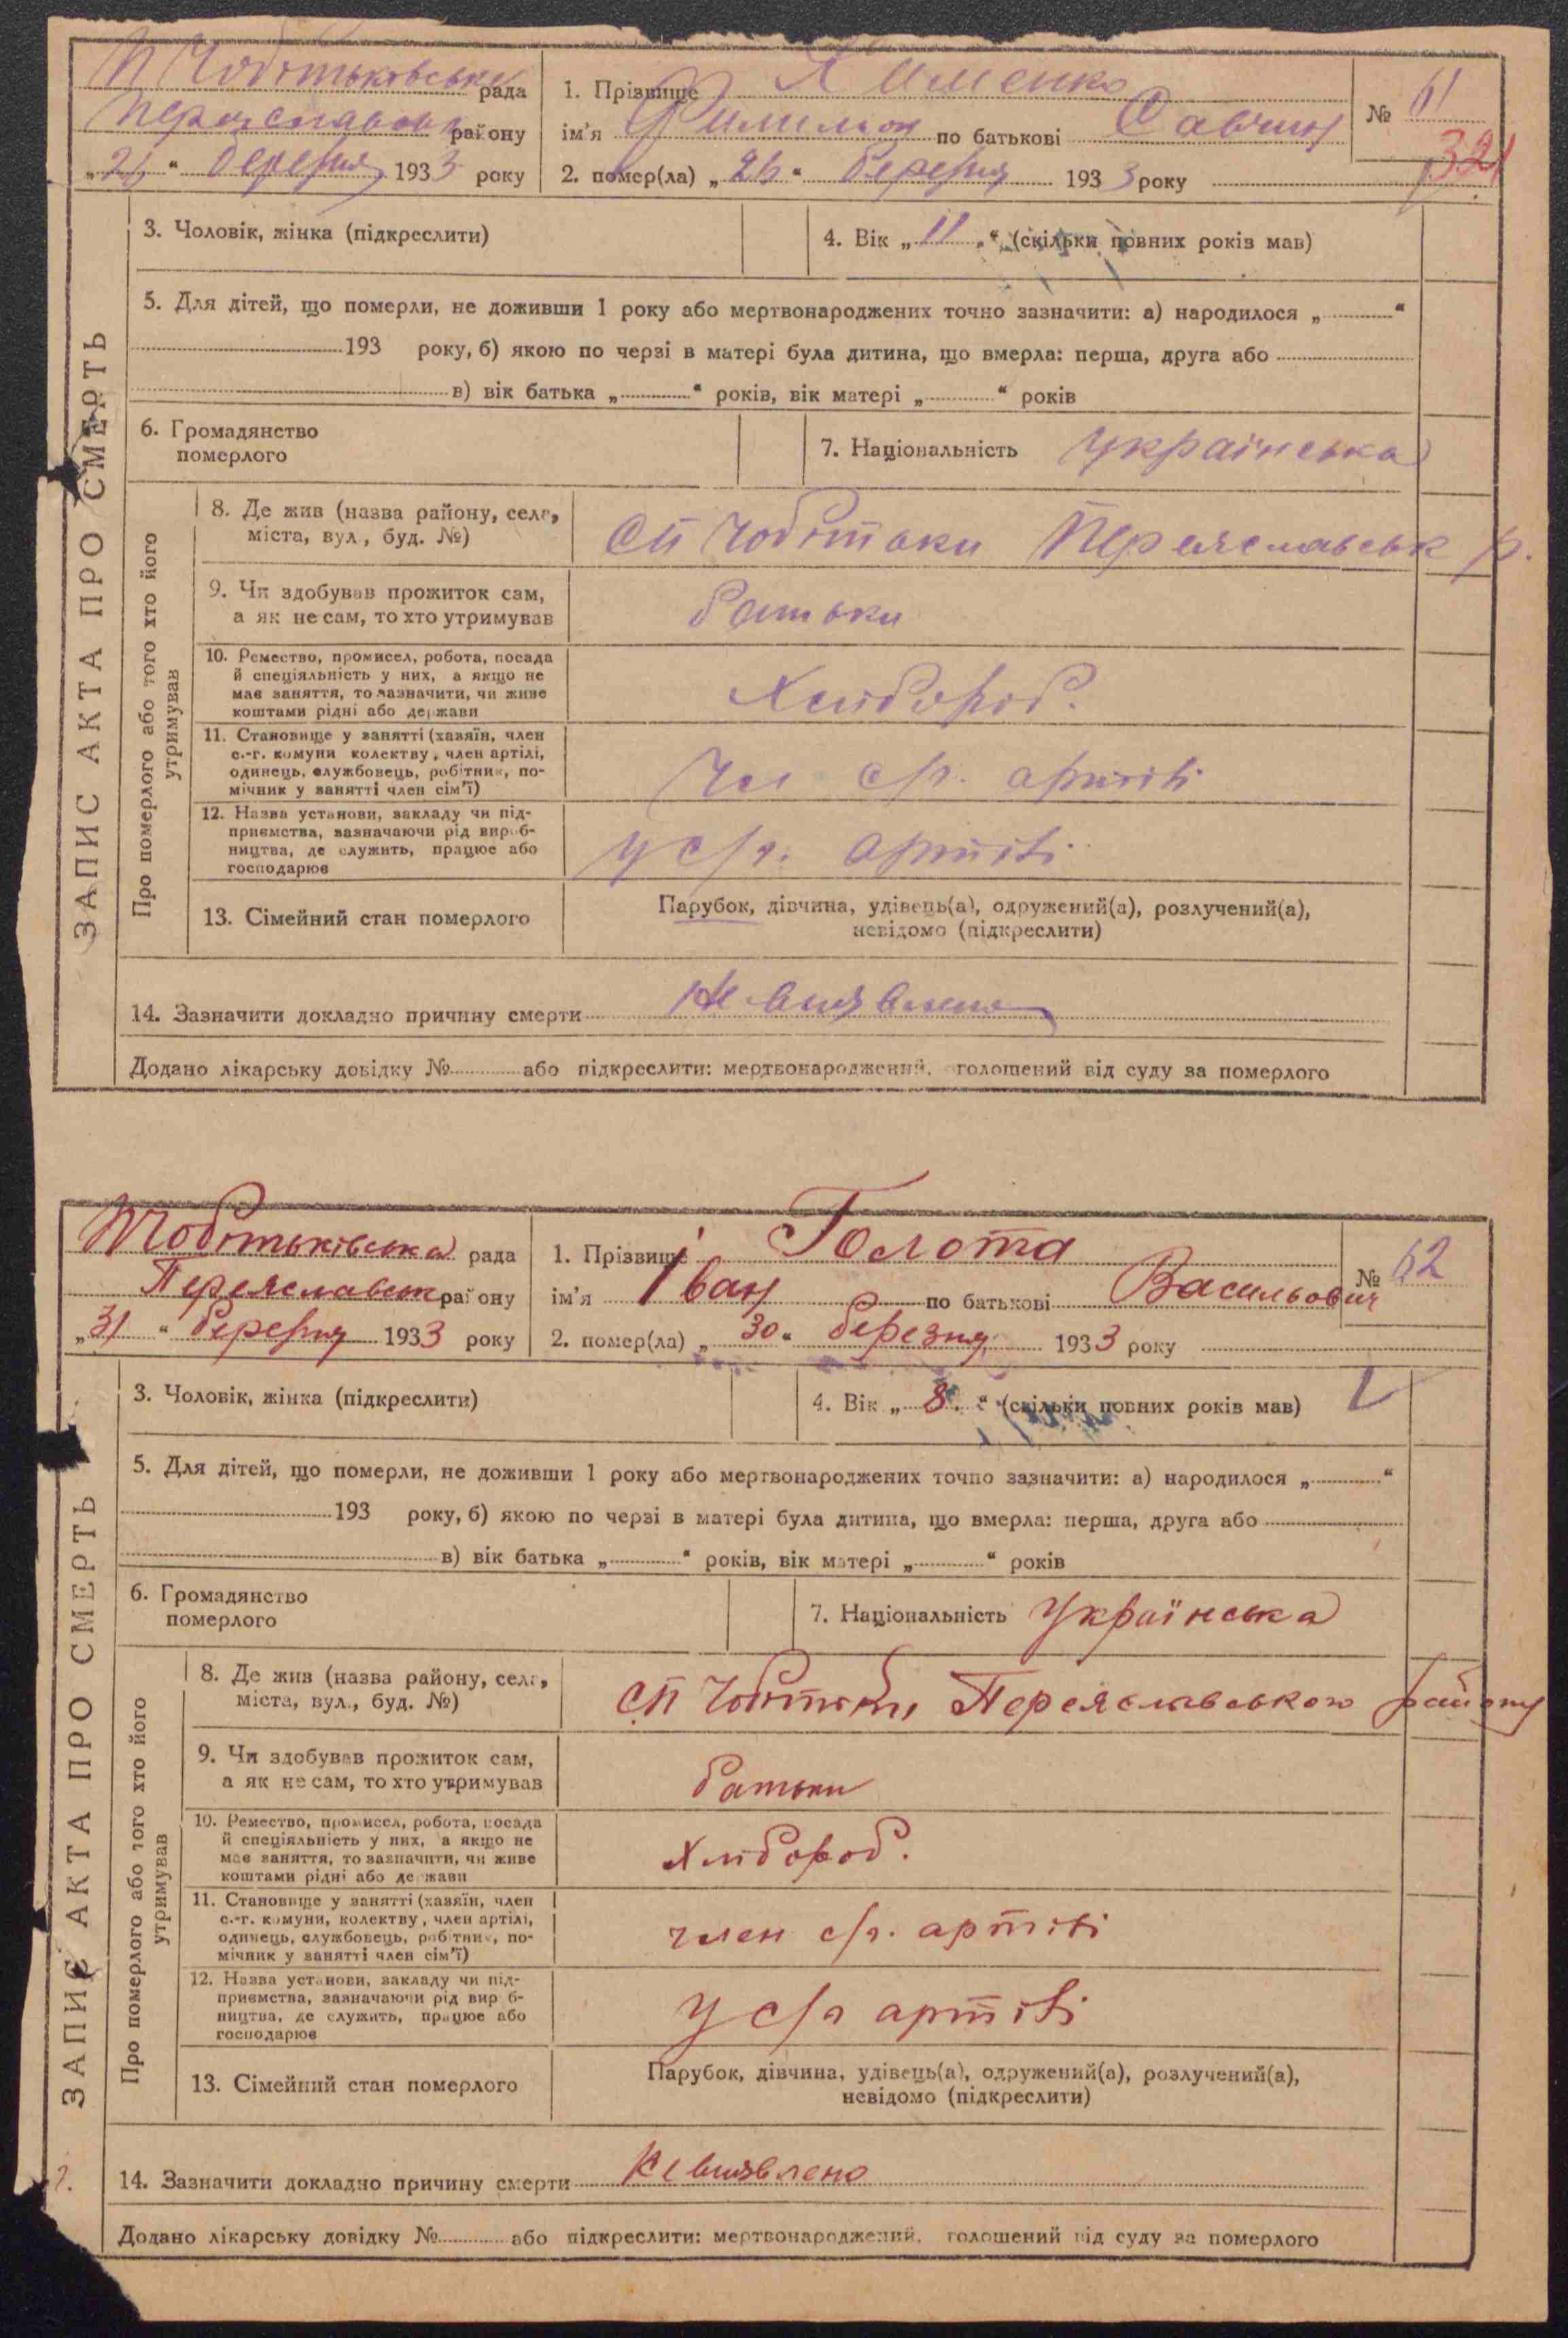 П Чобітьківська рада
Переяславськ району
„26“ березня 1933 року
1. Прізвище Хименко
ім'я Филимон по батькові Савчин
2. помер(ла) „26“ березня 1933 року
№ 61
321
ЗАПИС АКТА ПРО СМЕРТЬ
3. Чоловік, жінка (підкреслити)
4. Вік „11“ (скільки повних років мав)
5. Для дітей, що померли, не доживши 1 року або мертвонароджених точно зазначити: а) народилося „ “
193 року, б) якою по черзі в матері була дитина, що вмерла: перша, друга або
в) вік батька „ “ років, вік матері „ “ років
6. Громадянство
померлого
7. Національність українська
Про померлого або того хто його
утримував
8. Де жив (назва району, села,
міста, вул., буд. №)
СП Чобітьки Переяславськ р.
9. Чи здобував прожиток сам,
а як не сам, то хто утримував
батьки
10. Ремество, промисел, робота, посада
й спеціяльність у них, а якщо не
має заняття, то зазначити, чи живе
коштами рідні або держави
Хлібороб.
11. Становище у занятті (хазяїн, член
с.-г. комуни колектву, член артілі,
одинець, службовець, робітник, по-
мічник у занятті член сім'ї)
Чл с/г. артілі
12. Назва установи, закладу чи під-
приємства, зазначаючи рід вироб-
ництва, де служить, працює або
господарює
у с/г. артілі
13. Сімейний стан померлого
Парубок, дівчина, удівець(а), одружений(а), розлучений(а),
невідомо (підкреслити)
14. Зазначити докладно причину смерти Не виявлено
Додано лікарську довідку № або підкреслити: мертвонароджений, голошений від суду за померлого
ПЧобітьківська рада
Переяславськ району
„31“ березня 1933 року
1. Прізвище Голота
ім'я Іван по батькові Васильович
2. помер(ла) „30“ березня 1933 року
№ 62
ЗАПИС АКТА ПРО СМЕРТЬ
3. Чоловік, жінка (підкреслити)
4. Вік „8.“ (скільки повних років мав)
5. Для дітей, що померли, не доживши 1 року або мертвонароджених точно зазначити: а) народилося „ “
193 року, б) якою по черзі в матері була дитина, що вмерла: перша, друга або
в) вік батька „ “ років, вік матері „ “ років
6. Громадянство
померлого
7. Національність Українська
Про померлого або того хто його
утримував
8. Де жив (назва району, села,
міста, вул., буд. №)
СП Чобітьки Переяславського району
9. Чи здобував прожиток сам,
а як не сам, то хто утримував
батьки
10. Ремество, промисел, робота, посада
й спеціяльність у них, а якщо не
має заняття, то зазначити, чи живе
коштами рідні або держави
Хлібороб.
11. Становище у занятті (хазяїн, член
с.-г. комуни, колектву, член артілі,
одинець, службовець, робітник, по-
мічник у занятті член сім'ї)
член с/г. артілі
12. Назва установи, закладу чи під-
приємства, зазначаючи рід вироб-
ництва, де служить, працює або
господарює
У с/г артілі
13. Сімейний стан померлого
Парубок, дівчина, удівець(а), одружений(а), розлучений(а),
невідомо (підкреслити)
14. Зазначити докладно причину смерти Не виявлено
Додано лікарську довідку № або підкреслити: мертвонароджений, голошений від суду за померлого